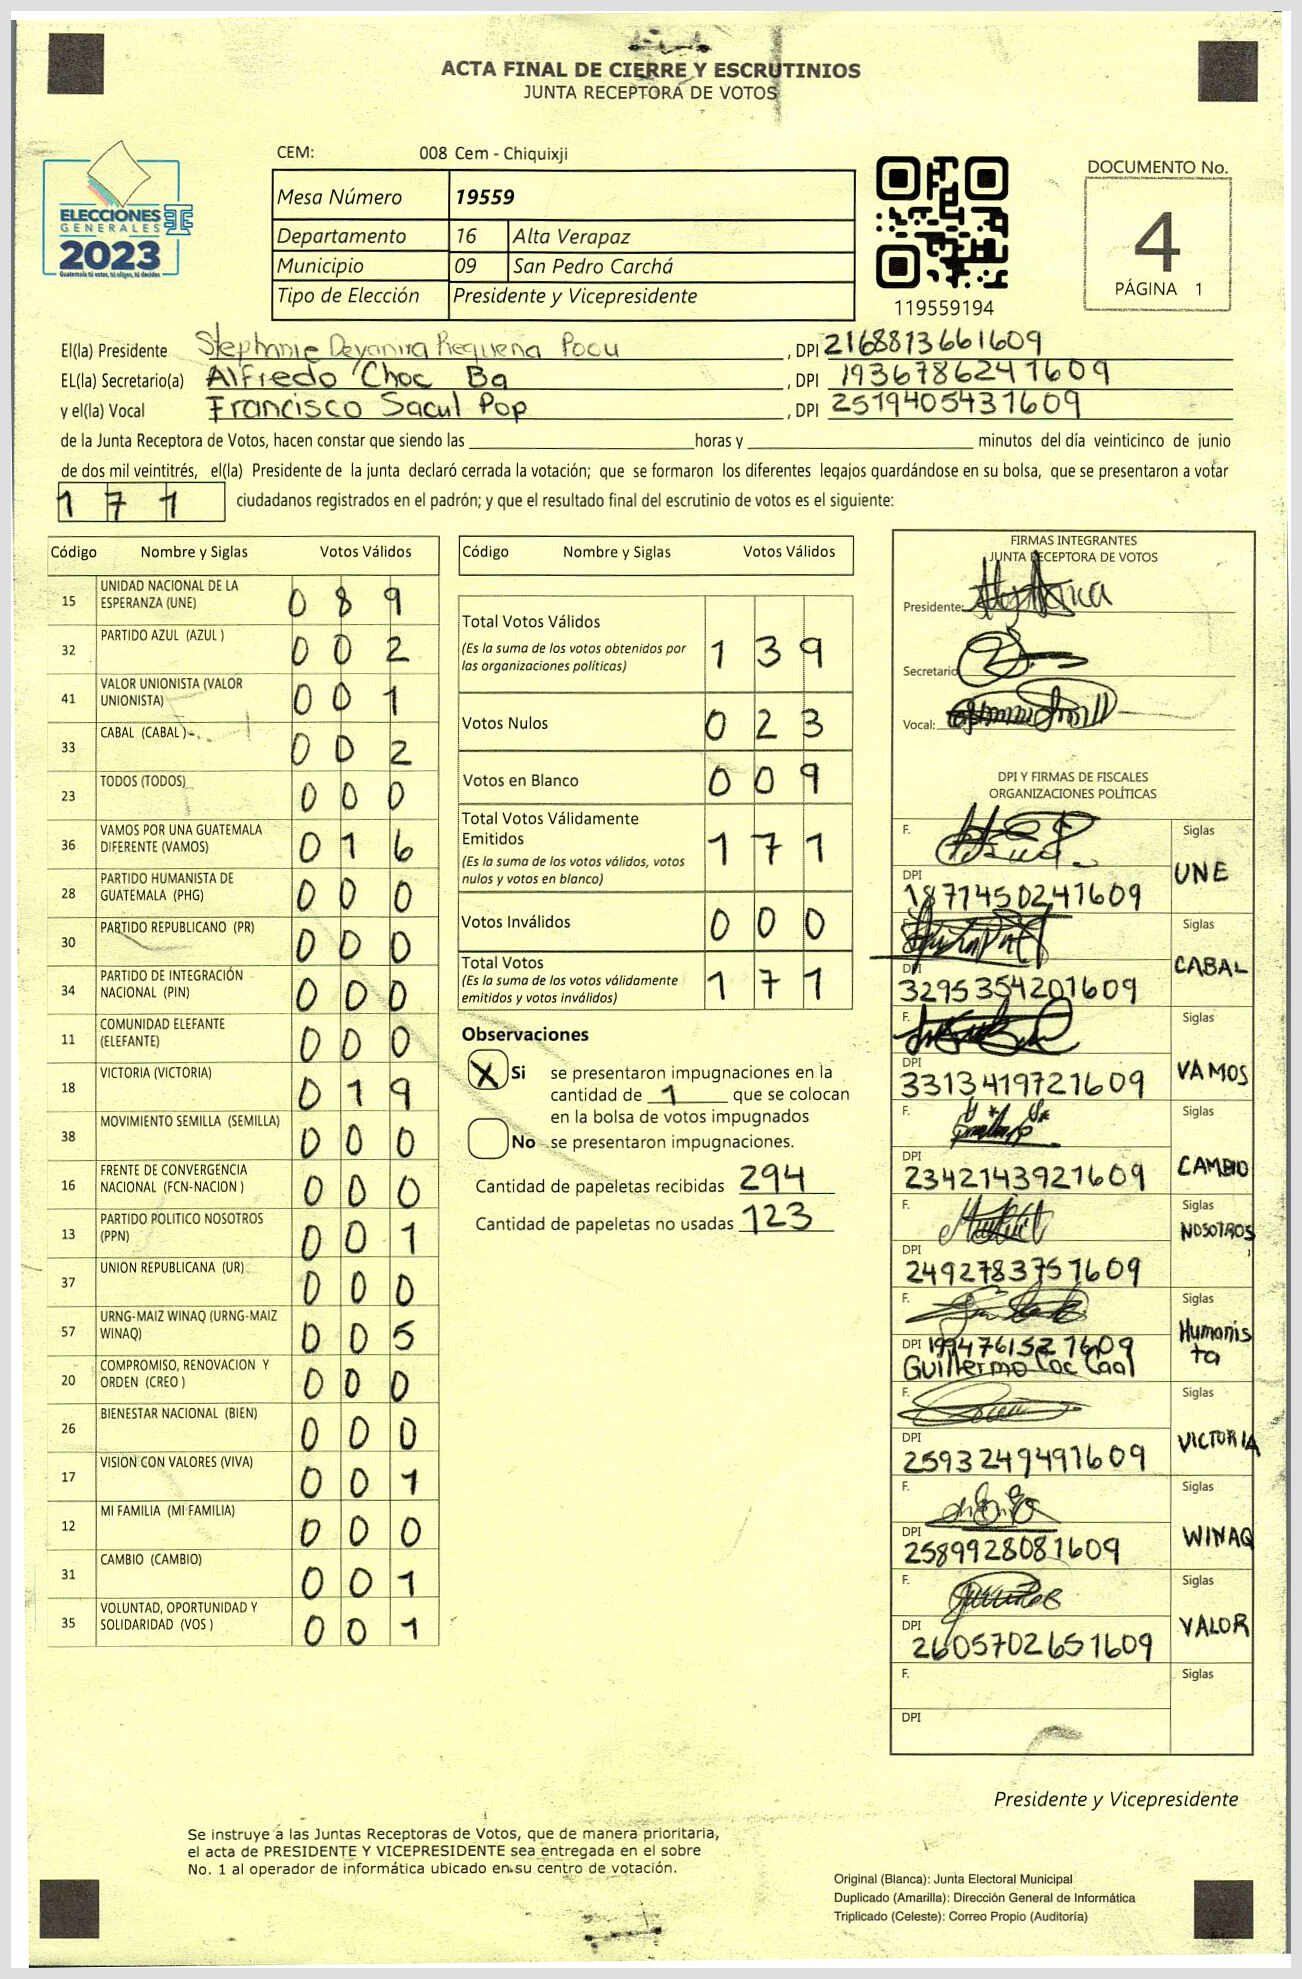 ACTA FINAL DE CIERRE Y ESCRUTINIOS
JUNTA RECEPTORA DE VOTOS
CEM: 008 Cem - Chiquixji
ELECCIONES
GENERALES
2023
Guatemala tú votas, tú eliges, tú decides
Mesa Número 19559
Departamento 16 Alta Verapaz
Municipio 09 San Pedro Carchá
Tipo de Elección Presidente y Vicepresidente
119559194
DOCUMENTO No.
4
PÁGINA 1
El(la) Presidente Stephanie Deyanira Requena Pocu , DPI 2168813661609
EL(la) Secretario(a) Alfredo Choc Ba , DPI 1936786241609
y el(la) Vocal Francisco Sacul Pop , DPI 2519405431609
de la Junta Receptora de Votos, hacen constar que siendo las horas y minutos del día veinticinco de junio
de dos mil veintitrés, el(la) Presidente de la junta declaró cerrada la votación; que se formaron los diferentes legajos guardándose en su bolsa, que se presentaron a votar
171 ciudadanos registrados en el padrón; y que el resultado final del escrutinio de votos es el siguiente:
Código Nombre y Siglas Votos Válidos
15 UNIDAD NACIONAL DE LA ESPERANZA (UNE) 0 8 9
32 PARTIDO AZUL (AZUL ) 0 0 2
41 VALOR UNIONISTA (VALOR UNIONISTA) 0 0 1
33 CABAL (CABAL ) 0 0 2
23 TODOS (TODOS) 0 0 0
36 VAMOS POR UNA GUATEMALA DIFERENTE (VAMOS) 0 1 6
28 PARTIDO HUMANISTA DE GUATEMALA (PHG) 0 0 0
30 PARTIDO REPUBLICANO (PR) 0 0 0
34 PARTIDO DE INTEGRACIÓN NACIONAL (PIN) 0 0 0
11 COMUNIDAD ELEFANTE (ELEFANTE) 0 0 0
18 VICTORIA (VICTORIA) 0 1 9
38 MOVIMIENTO SEMILLA (SEMILLA) 0 0 0
16 FRENTE DE CONVERGENCIA NACIONAL (FCN-NACION ) 0 0 0
13 PARTIDO POLITICO NOSOTROS (PPN) 0 0 1
37 UNION REPUBLICANA (UR) 0 0 0
57 URNG-MAIZ WINAQ (URNG-MAIZ WINAQ) 0 0 5
20 COMPROMISO, RENOVACION Y ORDEN (CREO ) 0 0 0
26 BIENESTAR NACIONAL (BIEN) 0 0 0
17 VISION CON VALORES (VIVA) 0 0 1
12 MI FAMILIA (MI FAMILIA) 0 0 0
31 CAMBIO (CAMBIO) 0 0 1
35 VOLUNTAD, OPORTUNIDAD Y SOLIDARIDAD (VOS ) 0 0 1
Código Nombre y Siglas Votos Válidos
Total Votos Válidos 1 3 9
(Es la suma de los votos obtenidos por
las organizaciones políticas)
Votos Nulos 0 2 3
Votos en Blanco 0 0 9
Total Votos Válidamente
Emitidos 1 7 1
(Es la suma de los votos válidos, votos
nulos y votos en blanco)
Votos Inválidos 0 0 0
Total Votos 1 7 1
(Es la suma de los votos válidamente
emitidos y votos inválidos)
Observaciones
X Si se presentaron impugnaciones en la
cantidad de 1 que se colocan
en la bolsa de votos impugnados
No se presentaron impugnaciones.
Cantidad de papeletas recibidas 294
Cantidad de papeletas no usadas 123
FIRMAS INTEGRANTES
JUNTA RECEPTORA DE VOTOS
Presidente:
Secretario
Vocal:
DPI Y FIRMAS DE FISCALES
ORGANIZACIONES POLÍTICAS
F. Siglas
DPI 1871450241609 UNE
F. Siglas
DPI 3295354201609 CABAL
F. Siglas
DPI 3313419721609 VAMOS
F. Siglas
DPI 2342143921609 CAMBIO
F. Siglas
DPI 2492783751609 NOSOTROS
F. Siglas
DPI 1994761521609 Humanista
Guillermo Coc Caal
F. Siglas
DPI 2593249491609 VICTORIA
F. Siglas
DPI 2589928081609 WINAQ
F. Siglas
DPI 2605702651609 VALOR
F. Siglas
DPI
Presidente y Vicepresidente
Se instruye a las Juntas Receptoras de Votos, que de manera prioritaria,
el acta de PRESIDENTE Y VICEPRESIDENTE sea entregada en el sobre
No. 1 al operador de informática ubicado en su centro de votación.
Original (Blanca): Junta Electoral Municipal
Duplicado (Amarilla): Dirección General de Informática
Triplicado (Celeste): Correo Propio (Auditoría)